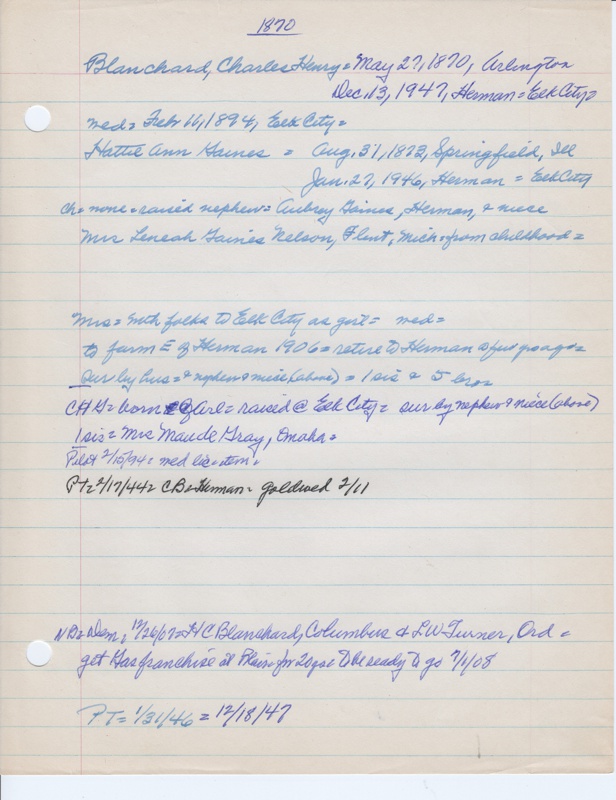 1870
Blanchard, Charles Henry = May 27, 1870, Arlington
Dec. 13, 1947, Herman = Elk City =
wed = Feb 11, 1894, Elk City =
Hattie Ann Gaines = Aug. 31, 1873, Springfield, Ill
Jan. 27, 1946, Herman = Elk City
ch = none = raised nephew = Aubrey Gaines, Herman, & niece
Mrs Leneah Gaines Nelson, Flint, Mich = from childhood =
Mrs = with folks to Elk City as girl = wed =
to farm E of Herman 1906 = retire to Herman
Sur by hus = & nephew & niece (above) = 1 sis & 5 bros =
born @ Arl = raised @ Elk City = sur by nephew & niece (above)
1 sis = Mrs Maude Gray, Omaha =
Pilot 2/15/94 = wed lic = item =
PT = 2/17/44 = CB = Herman = goldwed 2/11
12/26/07 = H C Blanchard, Columbus & L W Turner, Ord =
get Gas franchise at Blair = for 20 yrs = To be ready to go 7/1/08
PT = 1/31/46 = 12/18/47